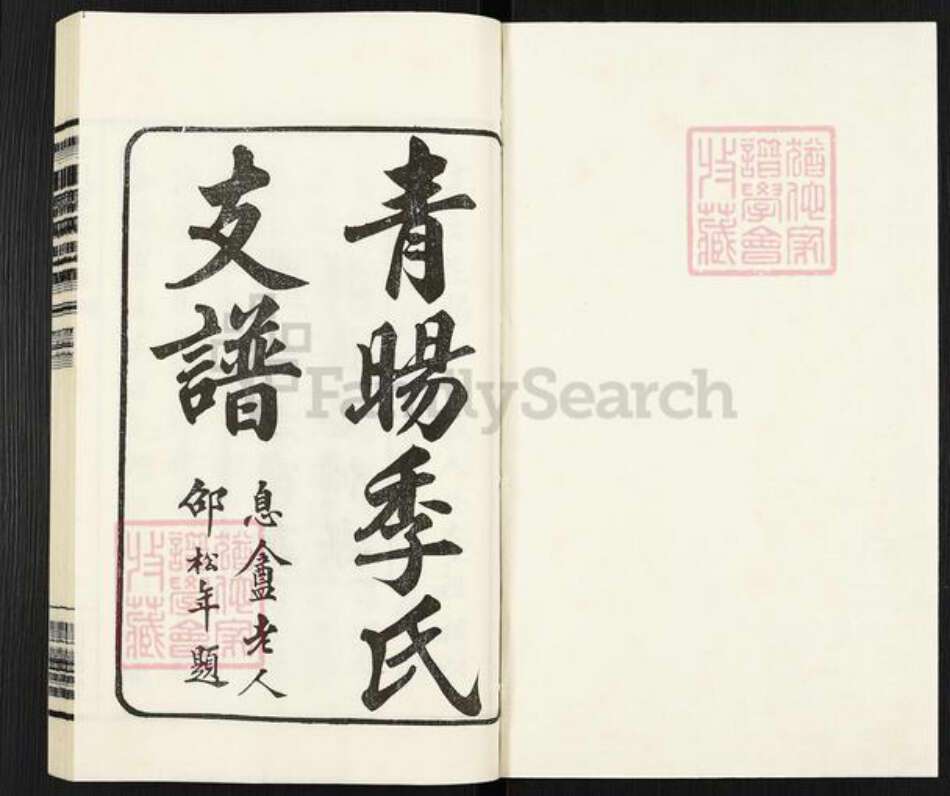 猶他家
譜學會
收藏
青暘季氏
支譜
息盦老人
邵松年題
猶他家
譜學會
收藏
FamilySearch